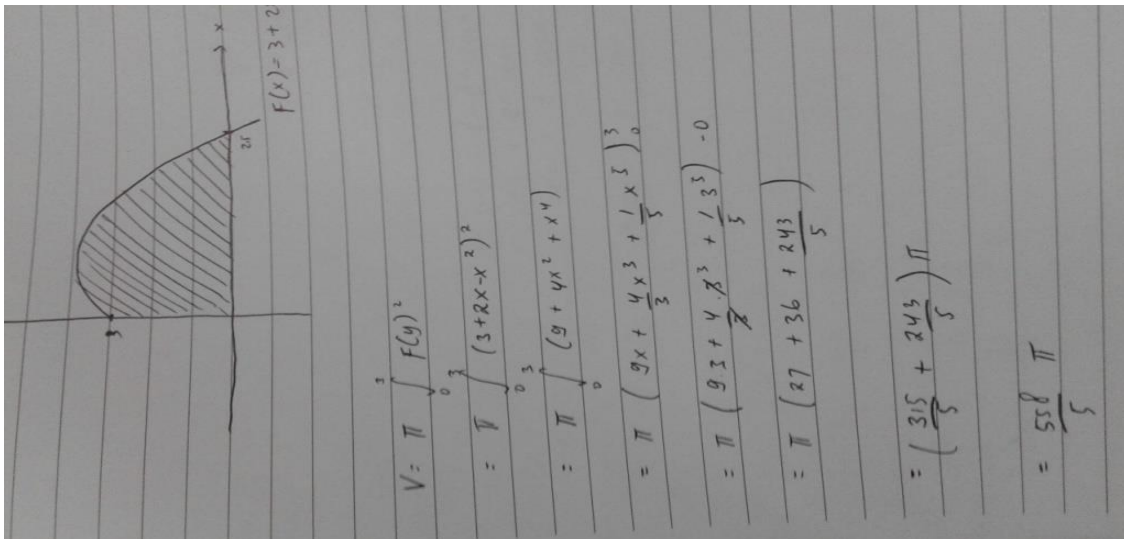 3
x
25
F(x) = 3 + 2
V = π ∫₀³ F(y)²
= π ∫₀³ (3+2x-x²)²
= π ∫₀³ (9 + 4x² + x⁴)
= π (9x + 4/3 x³ + 1/5 x⁵)₀³
= π (9.3 + 4/3 . 3³ + 1/5 3⁵) - 0
= π (27 + 36 + 243/5)
= (315/5 + 243/5) π
= 558/5 π